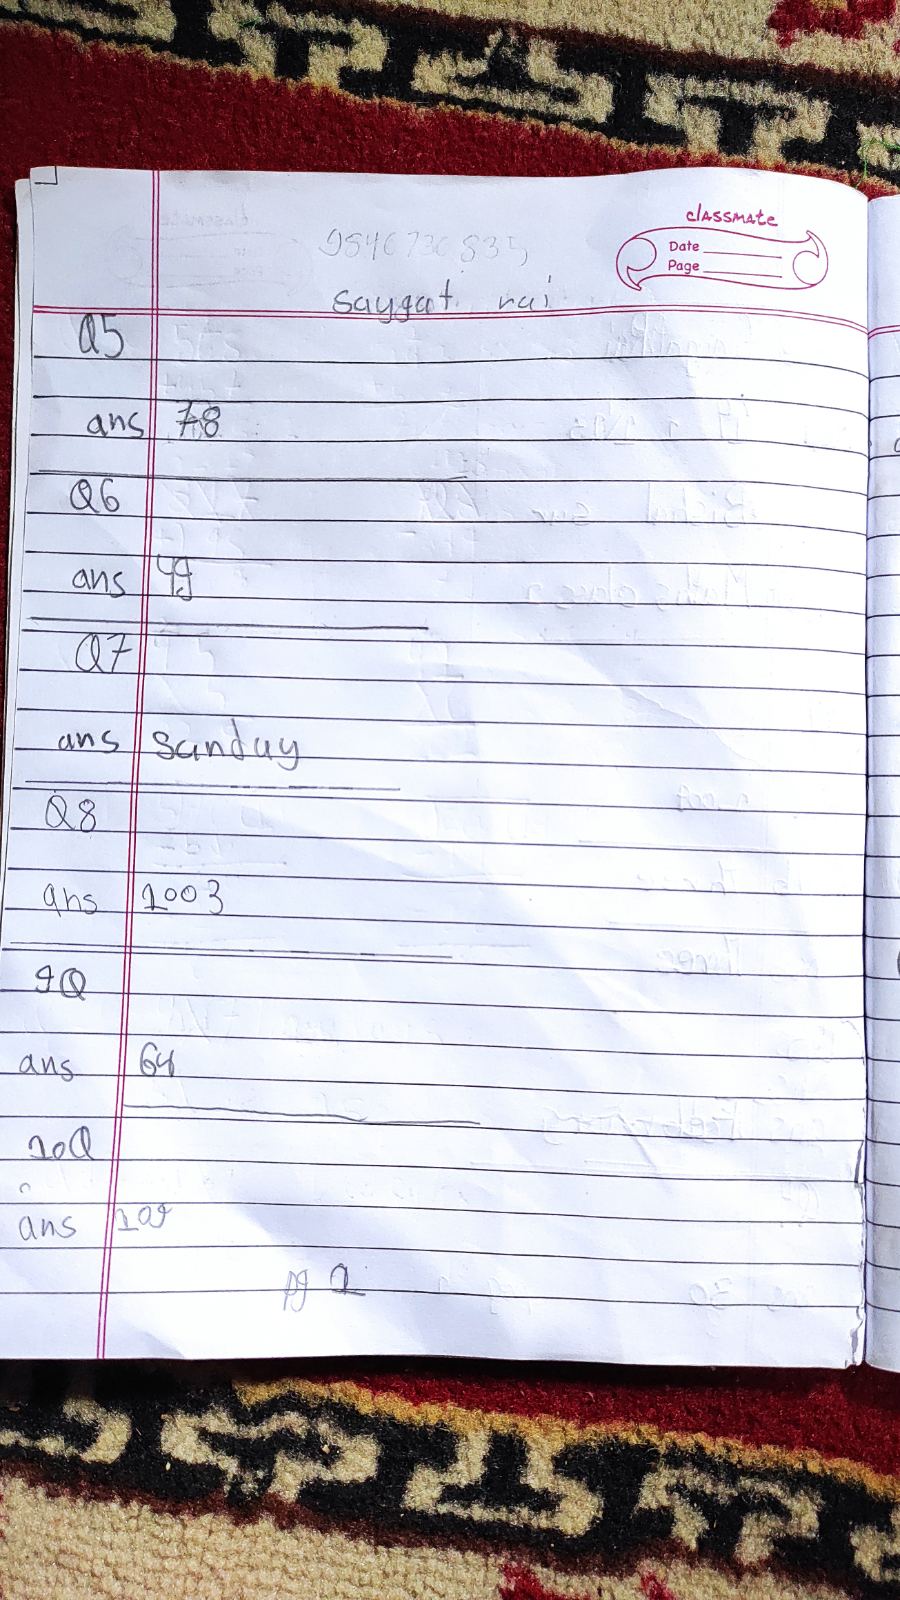 classmate
Date
Page
saygat rai
Q5
ans 78
Q6
ans 49
Q7
ans Sanday
Q8
ans 1003
9Q
ans 64
10Q
ans 109
pg 2